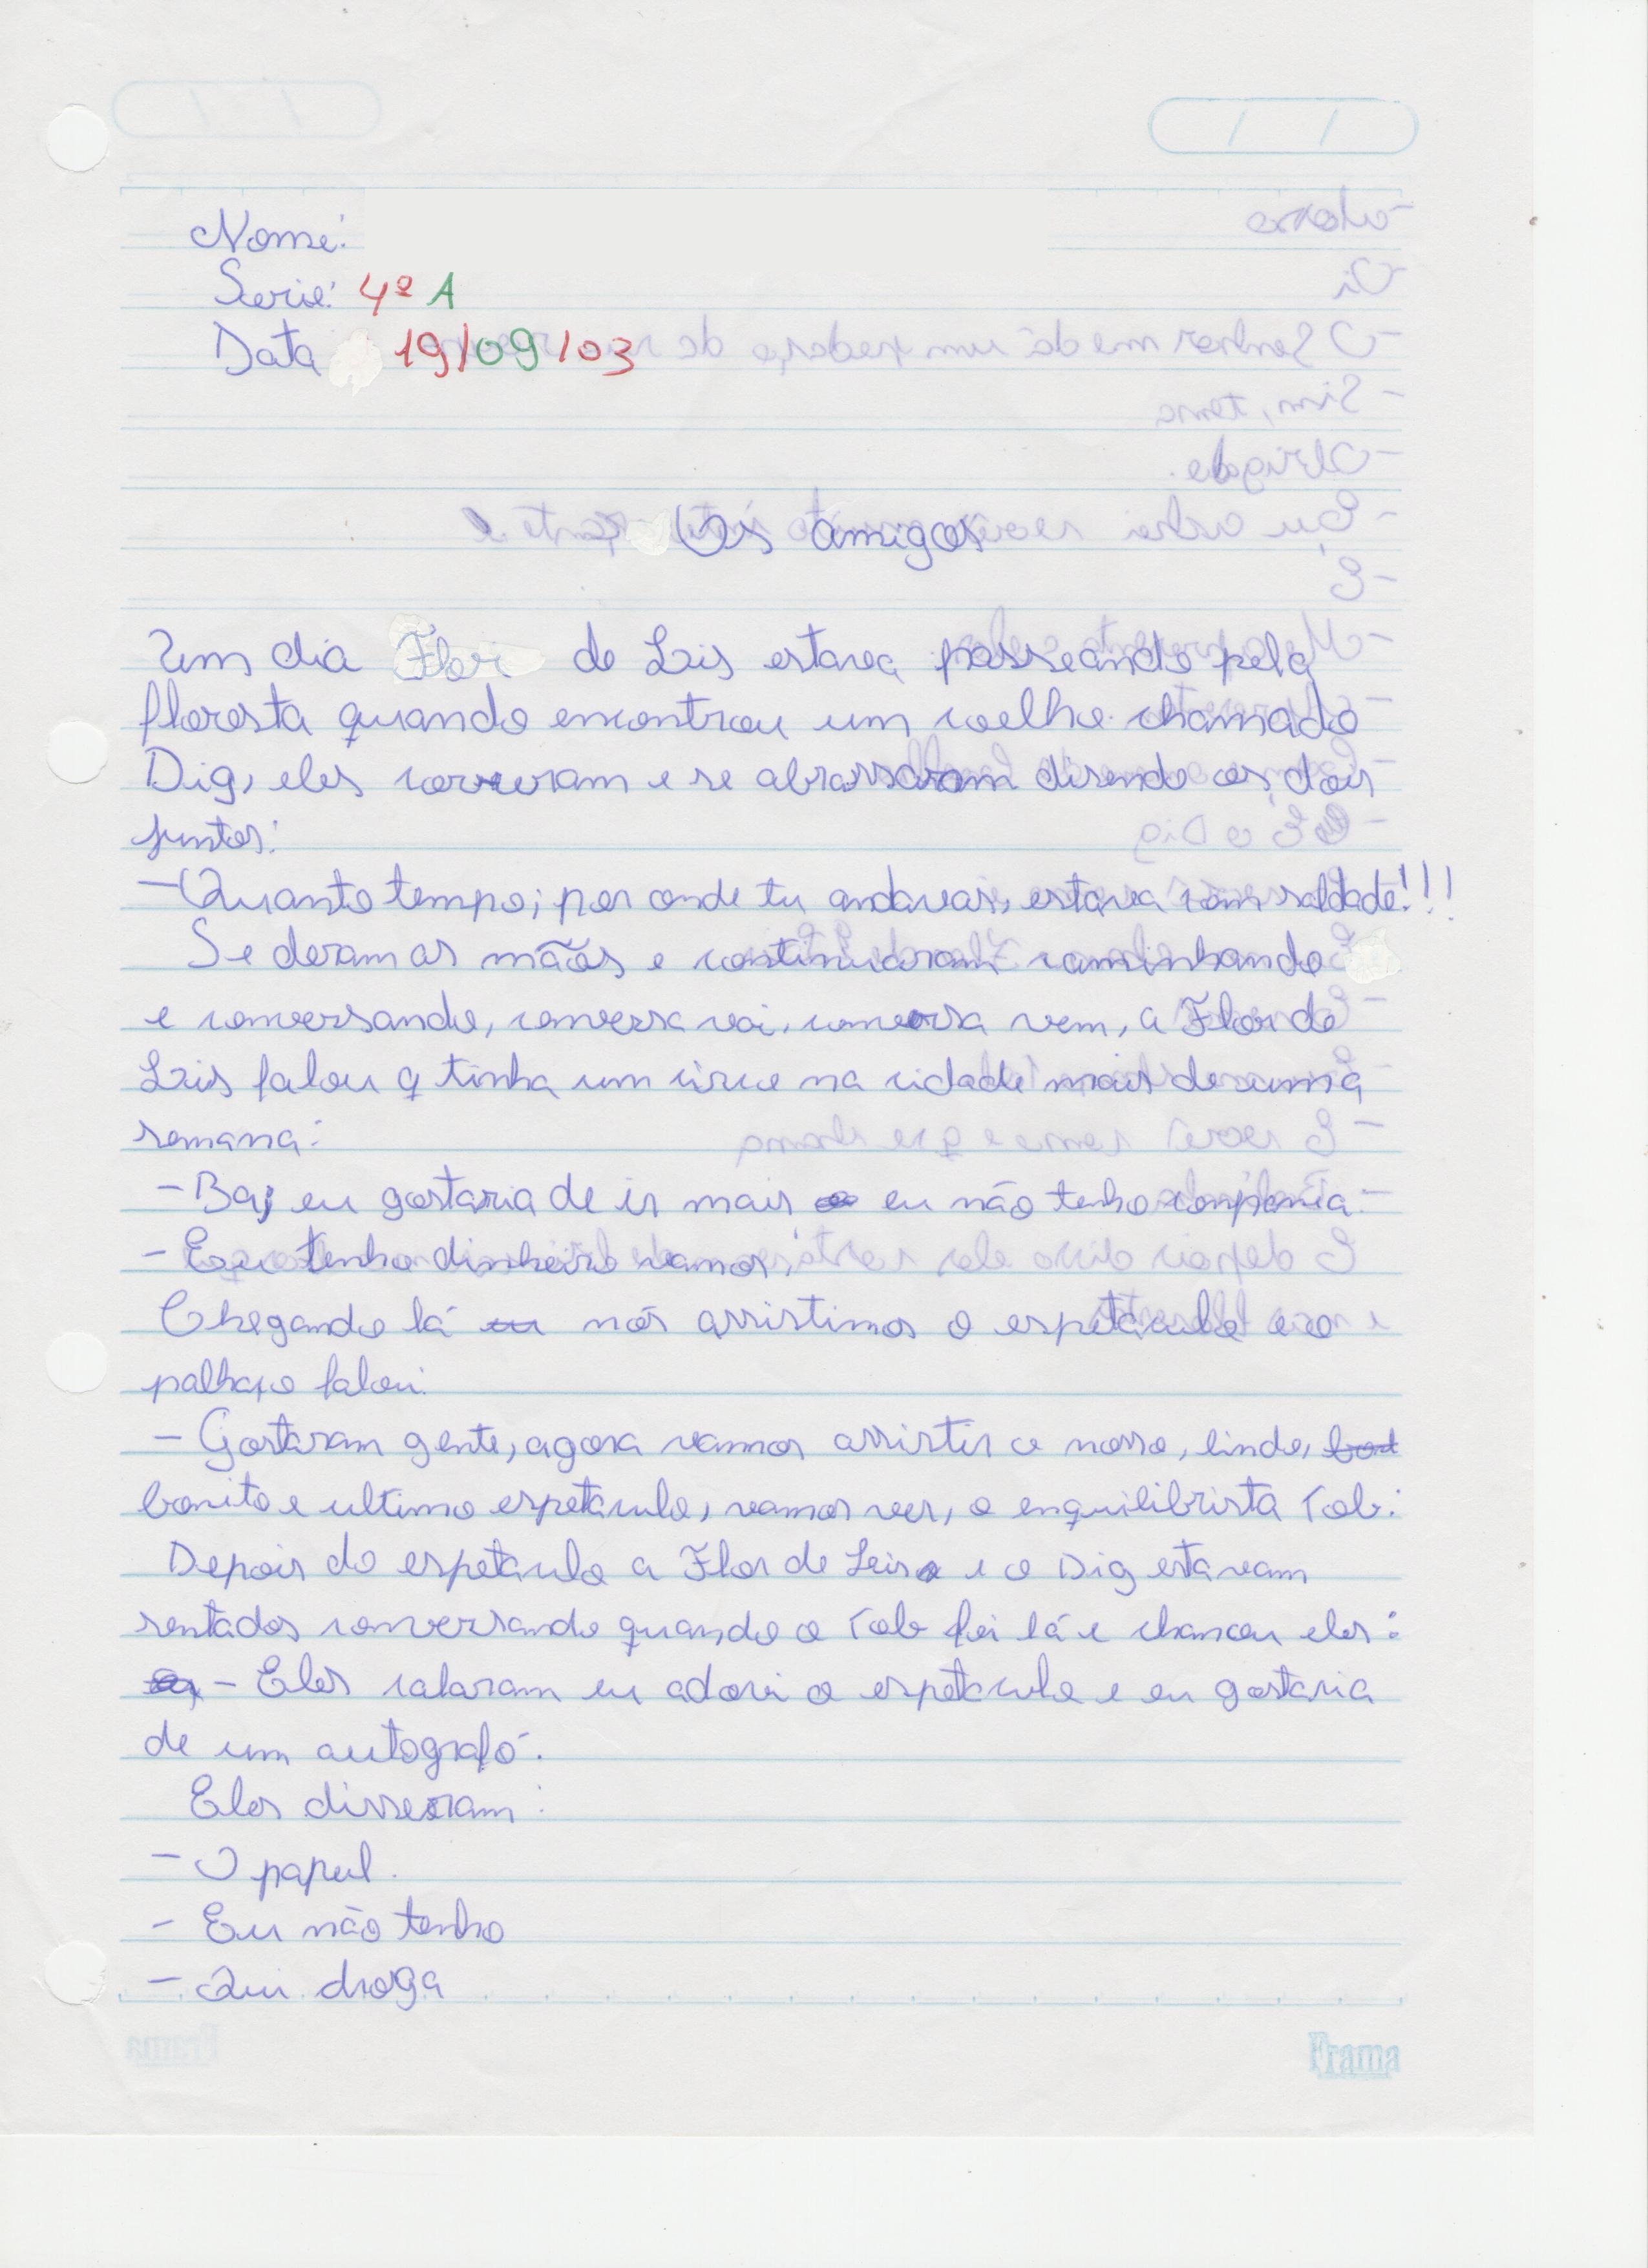 Nome:
Serie: 4ª A
Data 19/09/03
Os amigos
Um dia Flor de Lis estava passeando pela
floresta quando encontrou um coelho chamado
Dig, eles correram e se abrassaram disendo os dois
juntos:
- Quanto tempo; por onde tu andavas, estava com saldade!!!
Se deram as mãos e continuaram caminhando
e conversando, conversa vai, conversa vem, a Flor de
Lis falou q tinha um circo na cidade mais de uma
semana:
- Ba, eu gostaria de ir mais eu não tenho conpania.
- Eu tenho dinheiro vamos,
Chegando lá nós assistimos o espetáculo e o
palhaço falou:
- Gostaram gente, agora vamos assistir o nosso, lindo, bot
bonito e ultimo espetaculo, vamos ver, o enquilibrista Tob:
Depois do espetaculo a Flor de Leis e o Dig estavam
sentados conversando quando o Tob foi lá e chamou eles:
- Eles calaram eu adorei o espetaculo e eu gostaria
de um autografo.
Eles disseram:
- O papel.
- Eu não tenho
- Qui droga
Frama